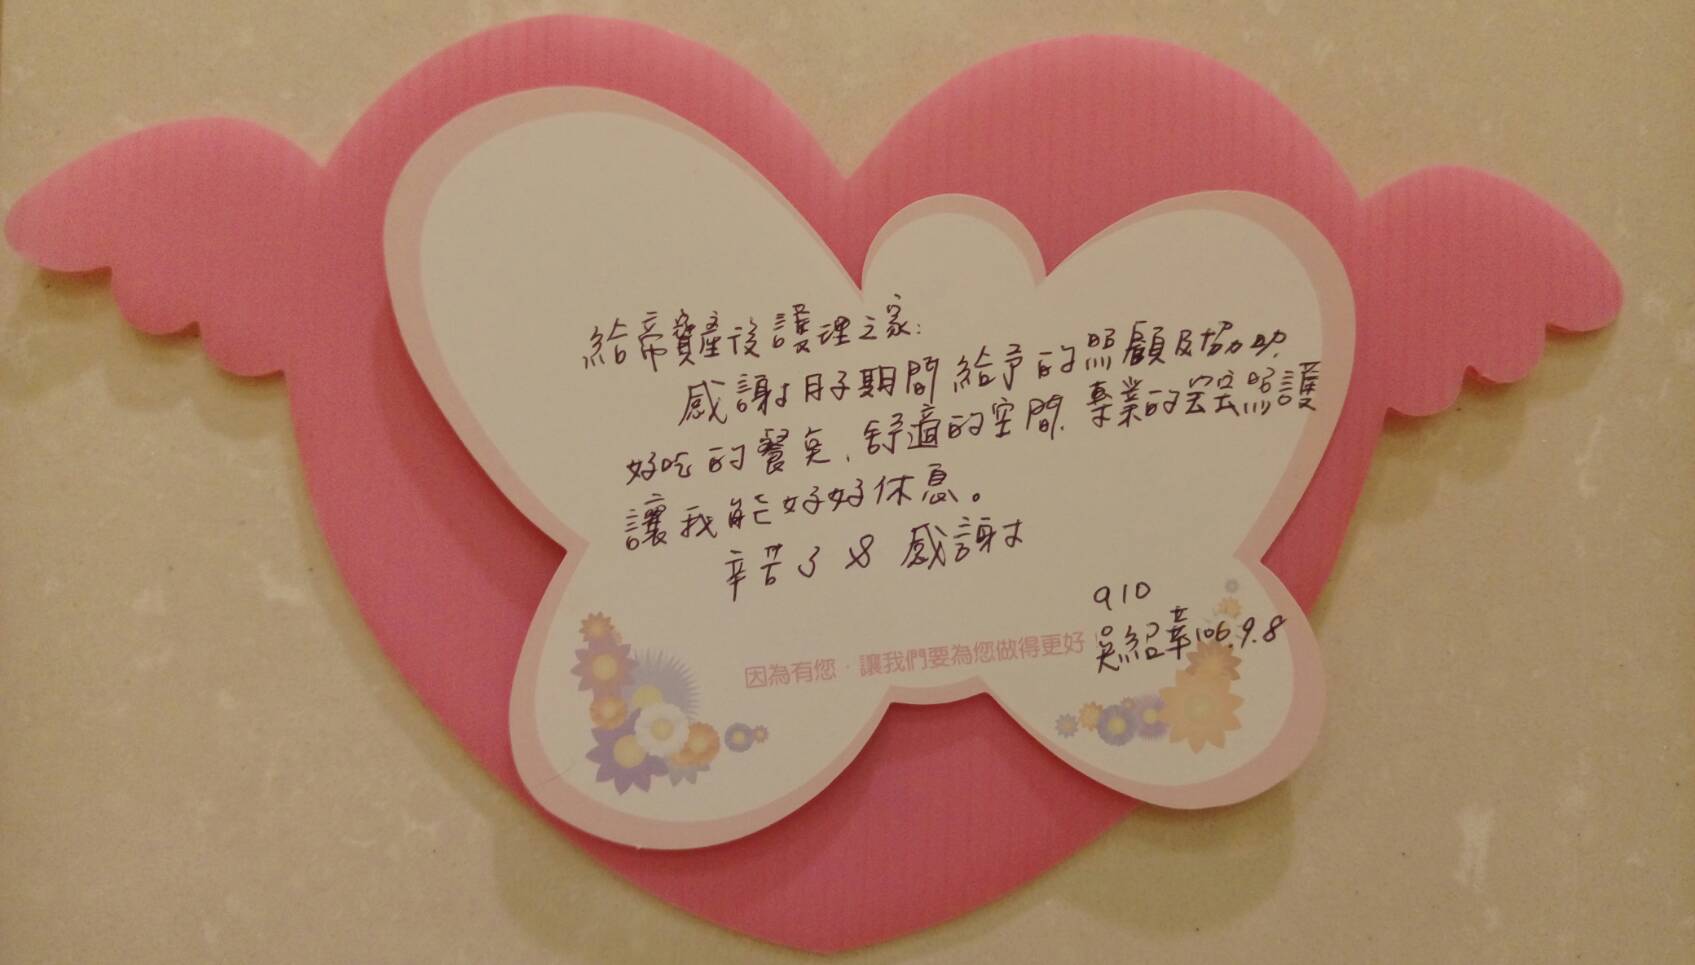 給帝寶產後護理之家:
感謝月子期間給予的照顧及協助
好吃的餐點、舒適的空間、專業的寶寶照護
讓我能好好休息。
辛苦了 & 感謝
910
吳紹華 106.9.8
因為有您‧讓我們要為您做得更好